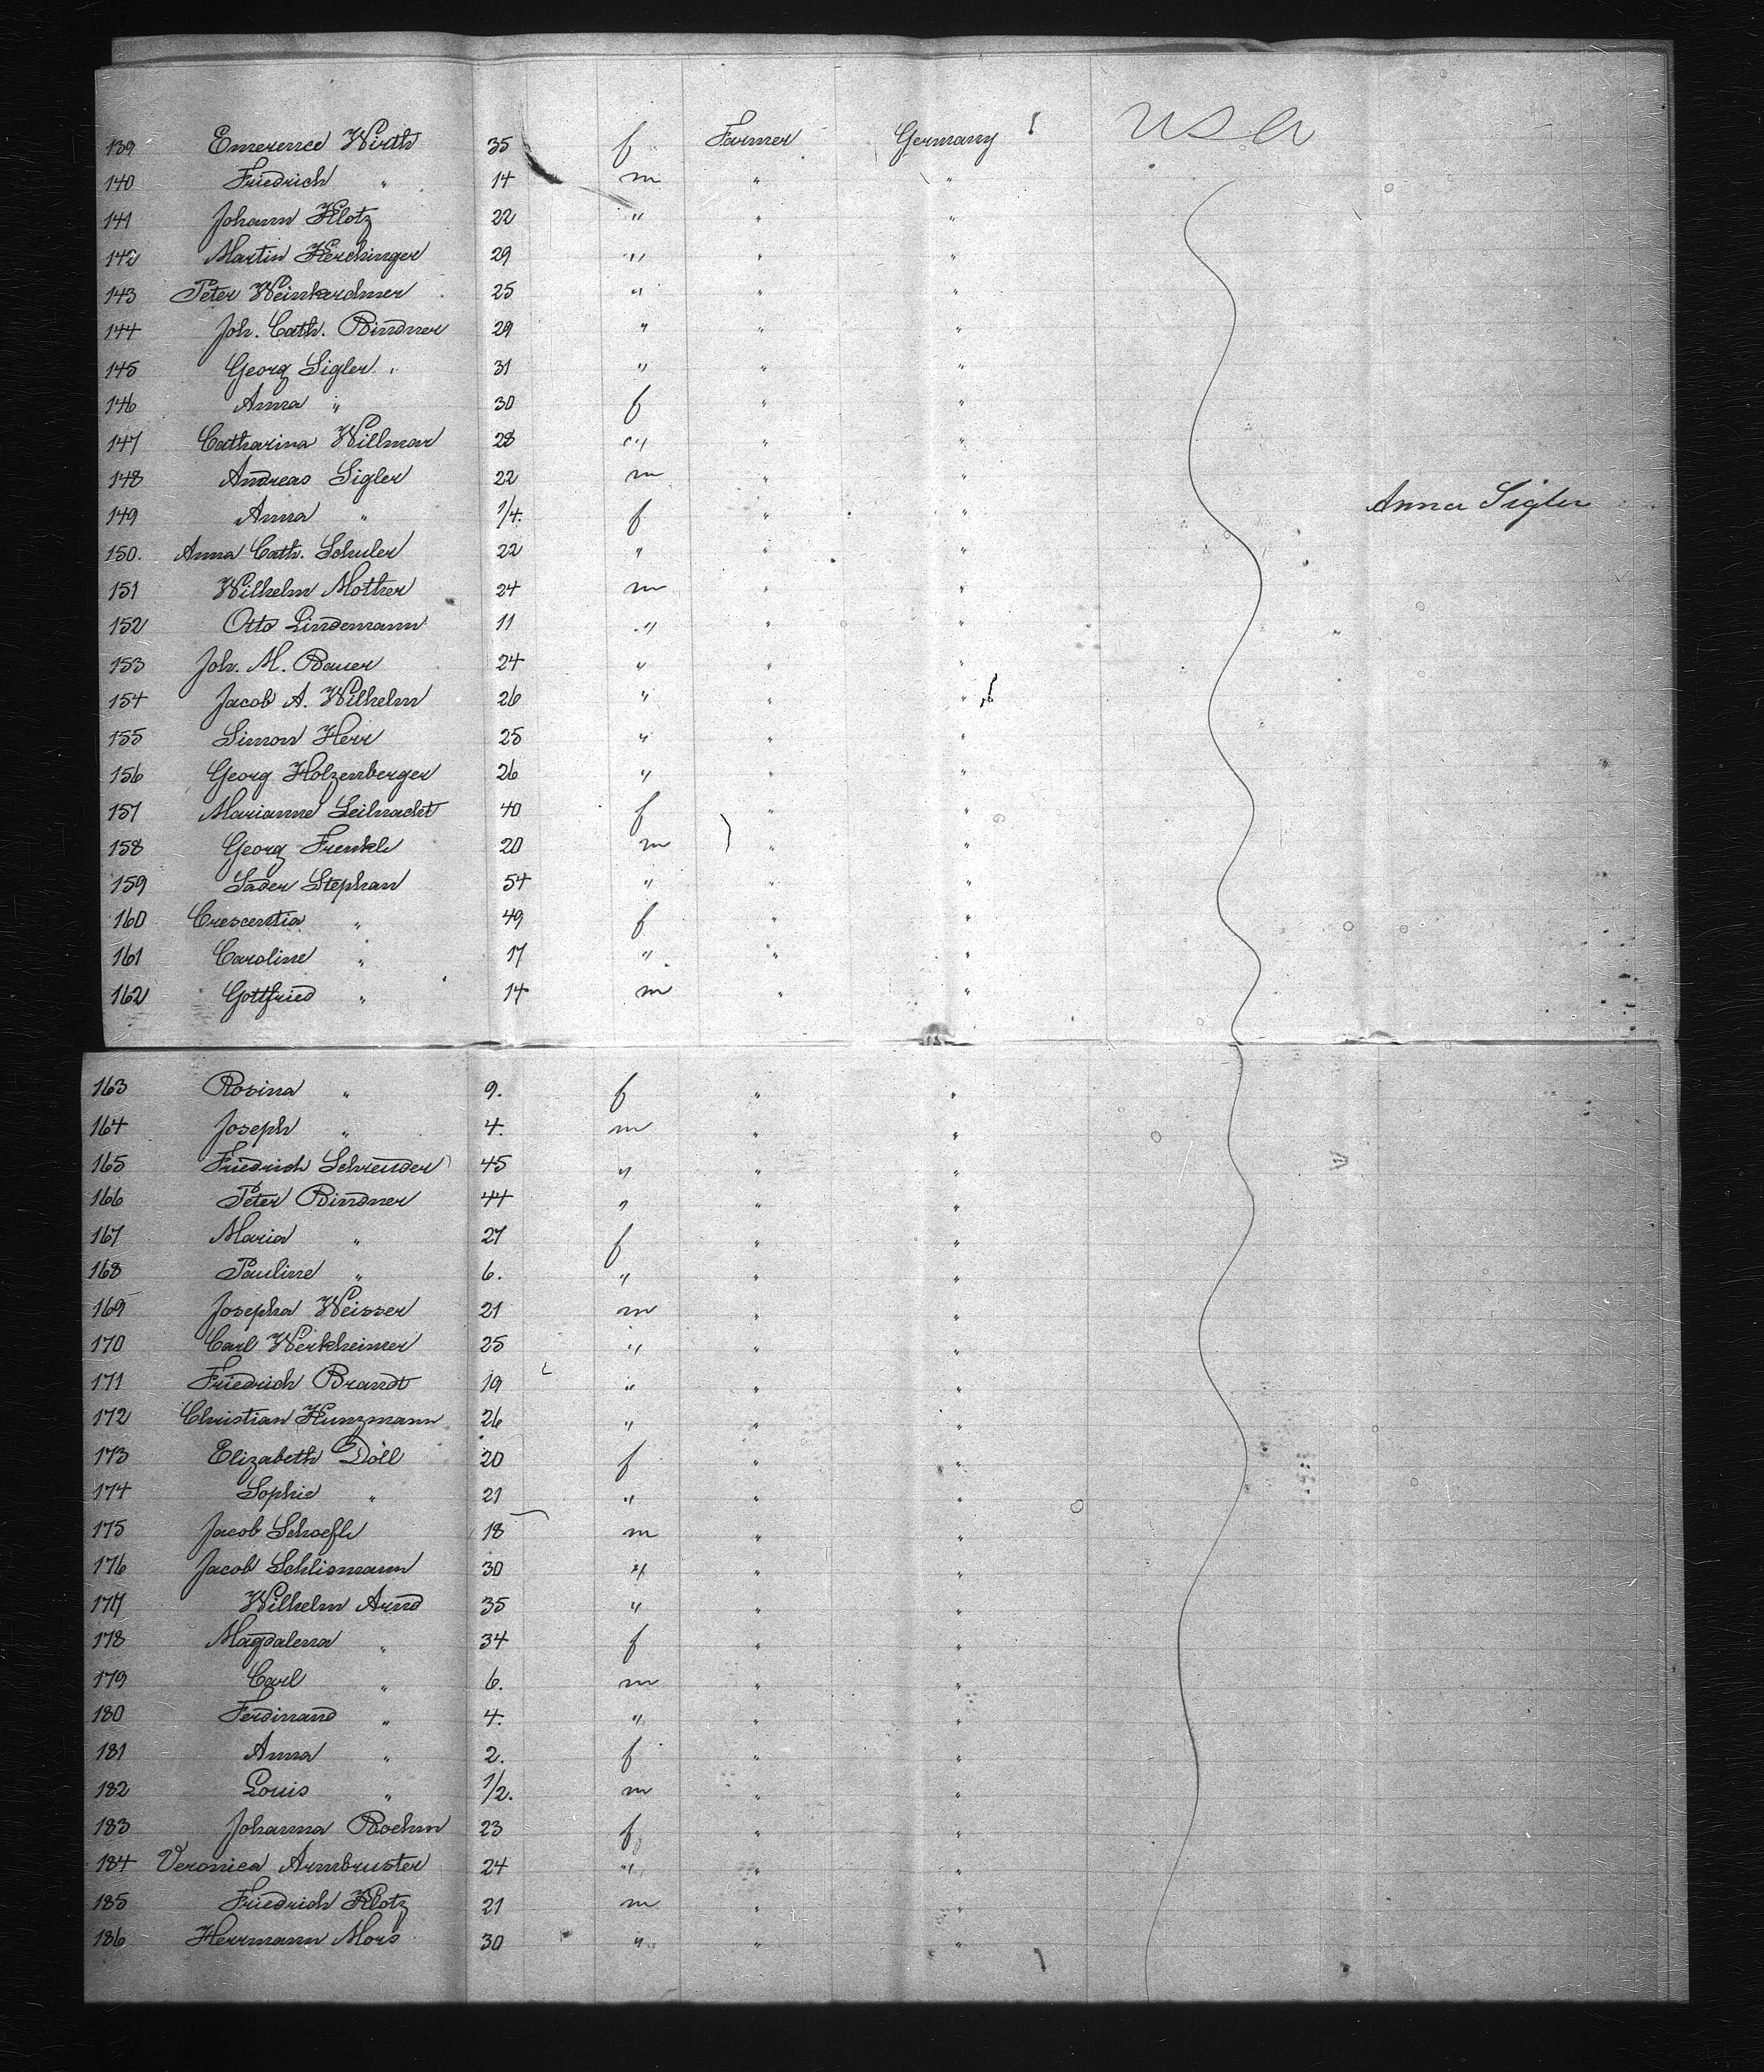 139 Emerence Wirth 35 f Farmer Germany USA
140 Friedrich " 14 m " "
141 Johann Klotz 22 " " "
142 Martin Herchinger 29 " " "
143 Peter Weinkerchner 25 " " "
144 Joh. Cath. Bindner 29 " " "
145 Georg Sigler " 31 " " "
146 Anna " 30 f " "
147 Catharina Willmar 28 " " "
148 Andreas Sigler 22 m " "
149 Anna " 1/4. f " " Anna Sigler
150. Anna Cath. Schuler 22 " " "
151 Wilhelm Mother 24 m " "
152 Otto Lindemann 11 " " "
153 Joh. M. Bauer 24 " " "
154 Jacob A. Wilhelm 26 " " "
155 Simon Herr 25 " " "
156 Georg Holzenberger 26 " " "
157 Marianne Leilnacht 40 f " "
158 Georg Frenkle 20 m " "
159 Sader Stephan 54 " " "
160 Crescentia " 49 f " "
161 Caroline " 17 " " "
162 Gottfried " 14 m " "
163 Rosina " 9. f " "
164 Joseph " 4. m " "
165 Friedrich Schreuder 45 " " "
166 Peter Bindner 44 " " "
167 Maria " 27 f " "
168 Pauline " 6. " " "
169 Josepha Weisser 21 m " "
170 Carl Werkheimer 25 " " "
171 Friedrich Brandt 19 " " "
172 Christian Kunzmann 26 " " "
173 Elizabeth Döll 20 f " "
174 Sophie " 21 " " "
175 Jacob Schoefle 18 m " "
176 Jacob Schlismann 30 " " "
177 Wilhelm Arnd 35 " " "
178 Magdalena " 34 f " "
179 Carl " 6. m " "
180 Ferdinand " 4. " " "
181 Anna " 2. f " "
182 Louis " 1/2. m " "
183 Johanna Boehm 23 f " "
184 Veronica Armbruster 24 " " "
185 Friedrich Klotz 21 m " "
186 Herrmann Mors 30 " " "